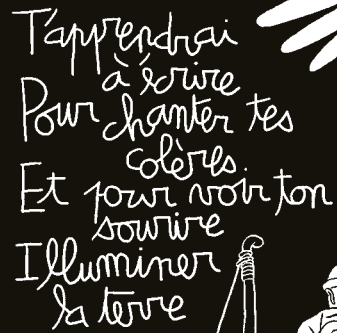 T'apprendrai
à écrire
Pour chanter tes
colères
Et pour voir ton
sourire
Illuminer
la terre